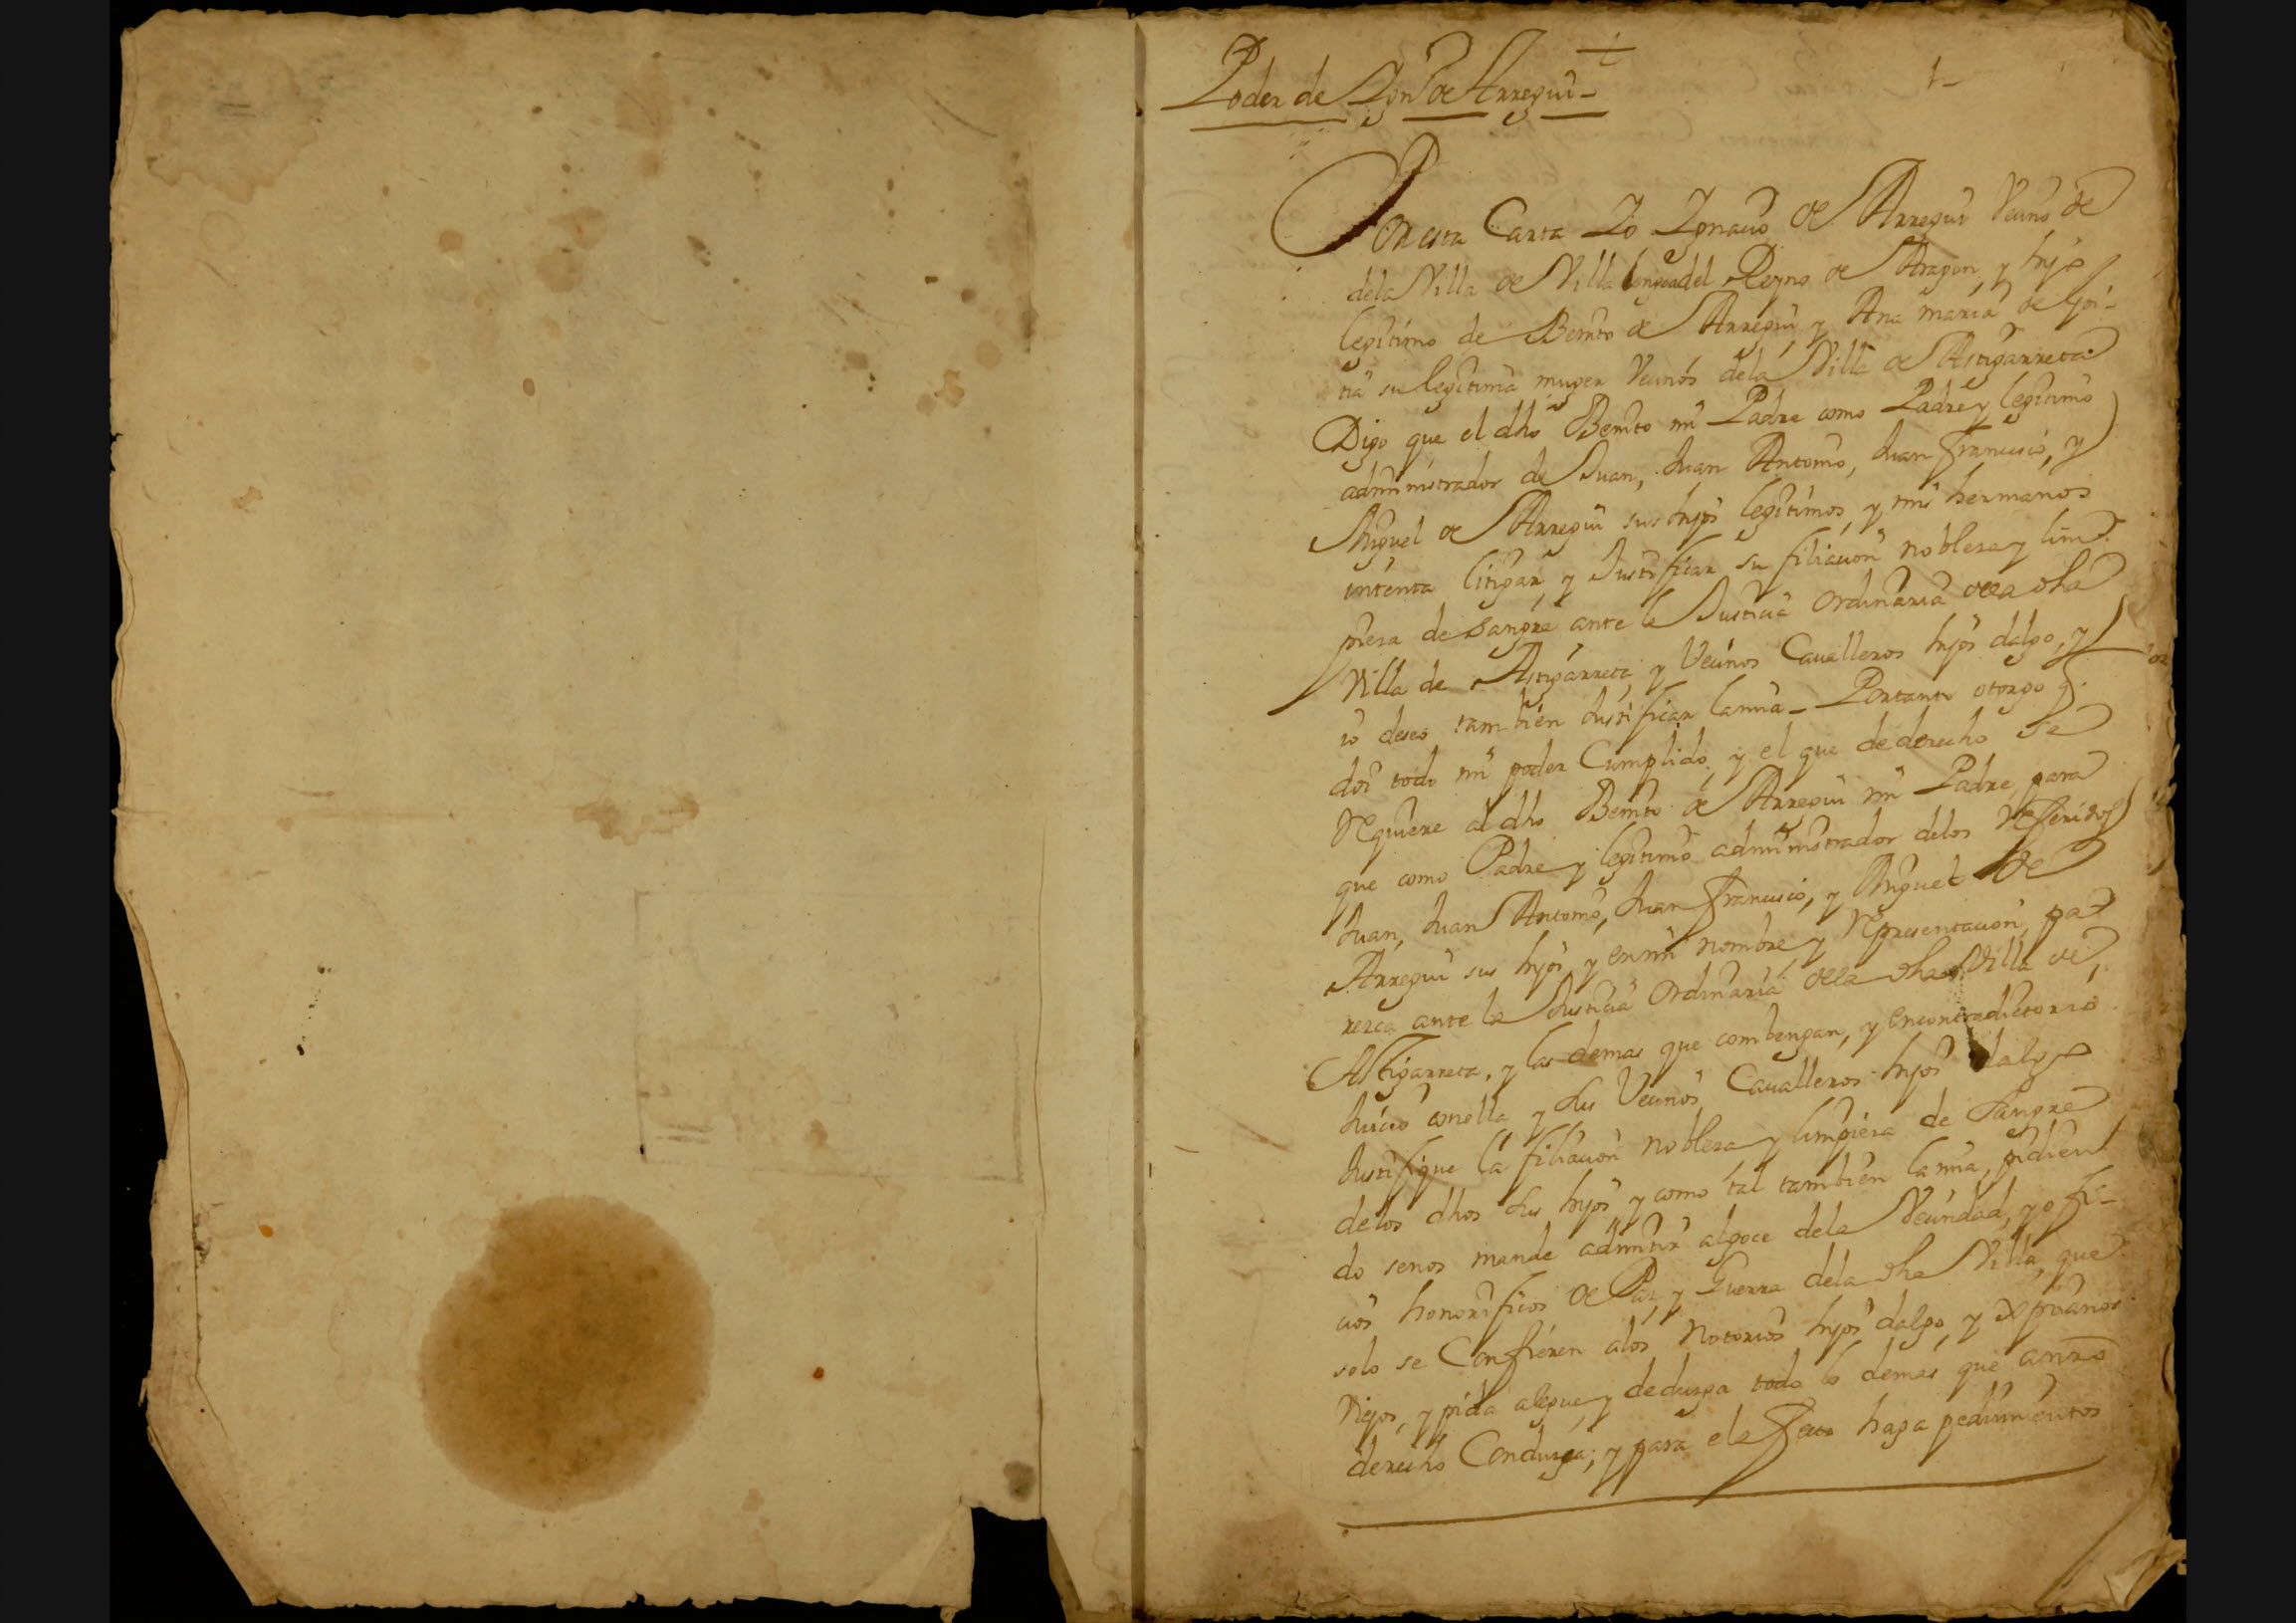 Poder de Ygnº de Arregui
1
Por esta Carta Yo Ygnacio de Arregui Vecino de
dela Villa de Villa longa del Reyno de Aragon, y hijo
legitimo de Benito de Arregui, y Ana maria de Goi-
tia su legitima muger Vecinos dela Villa de Astigarreta
Digo que el dho Benito mi Padre como Padre y legitimo
administrador de Juan, Juan Antonio, Juan Francisco, y
Miguel de Arregui sus hijos legitimos, y mis hermanos
intenta litigar, y Justificar su filiacion nobleza y lim-
pieza de sangre ante la Justicia Ordinaria dela dha
Villa de Astigarreta, y Vecinos Caualleros hijos dalgo, y
io deseo tambien Justificar la mia - Por tanto otorgo q.
doi todo mi poder Cumplido, y el que de derecho se
Requiere al dho Benito de Arregui mi Padre, para
que como Padre y legitimo administrador delos Referidos
Juan, Juan Antonio, Juan Francisco, y Miguel de
Arregui sus hijos, y en mi nombre, y Representacion, pa-
rezca ante la Justicia Ordinaria dela dha Villa de
Astigarreta, y las demas que combengan, y en contradictorio
Juicio con ella y sus Vecinos Caualleros hijos dalgo
Justifique la filiacion nobleza y limpieza de Sangre
delos dhos sus hijos y como tal tambien la mia, pidien
do senos mande admitir algoce dela Vecindad, y ofi-
cios honorificos de Paz, y Guerra dela dha Villa, que
solo se Confieren alos Notorios hijos dalgo, y xpianos
Viejos, y pida alegue, y deduzga todo lo demas que a nro
derecho Conduzga; y para el efecto haga pedimentos